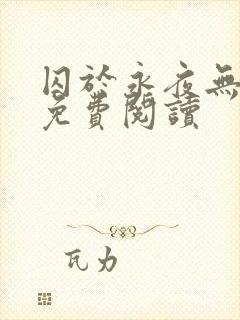 囚於永夜無
免費閱讀
瓦力